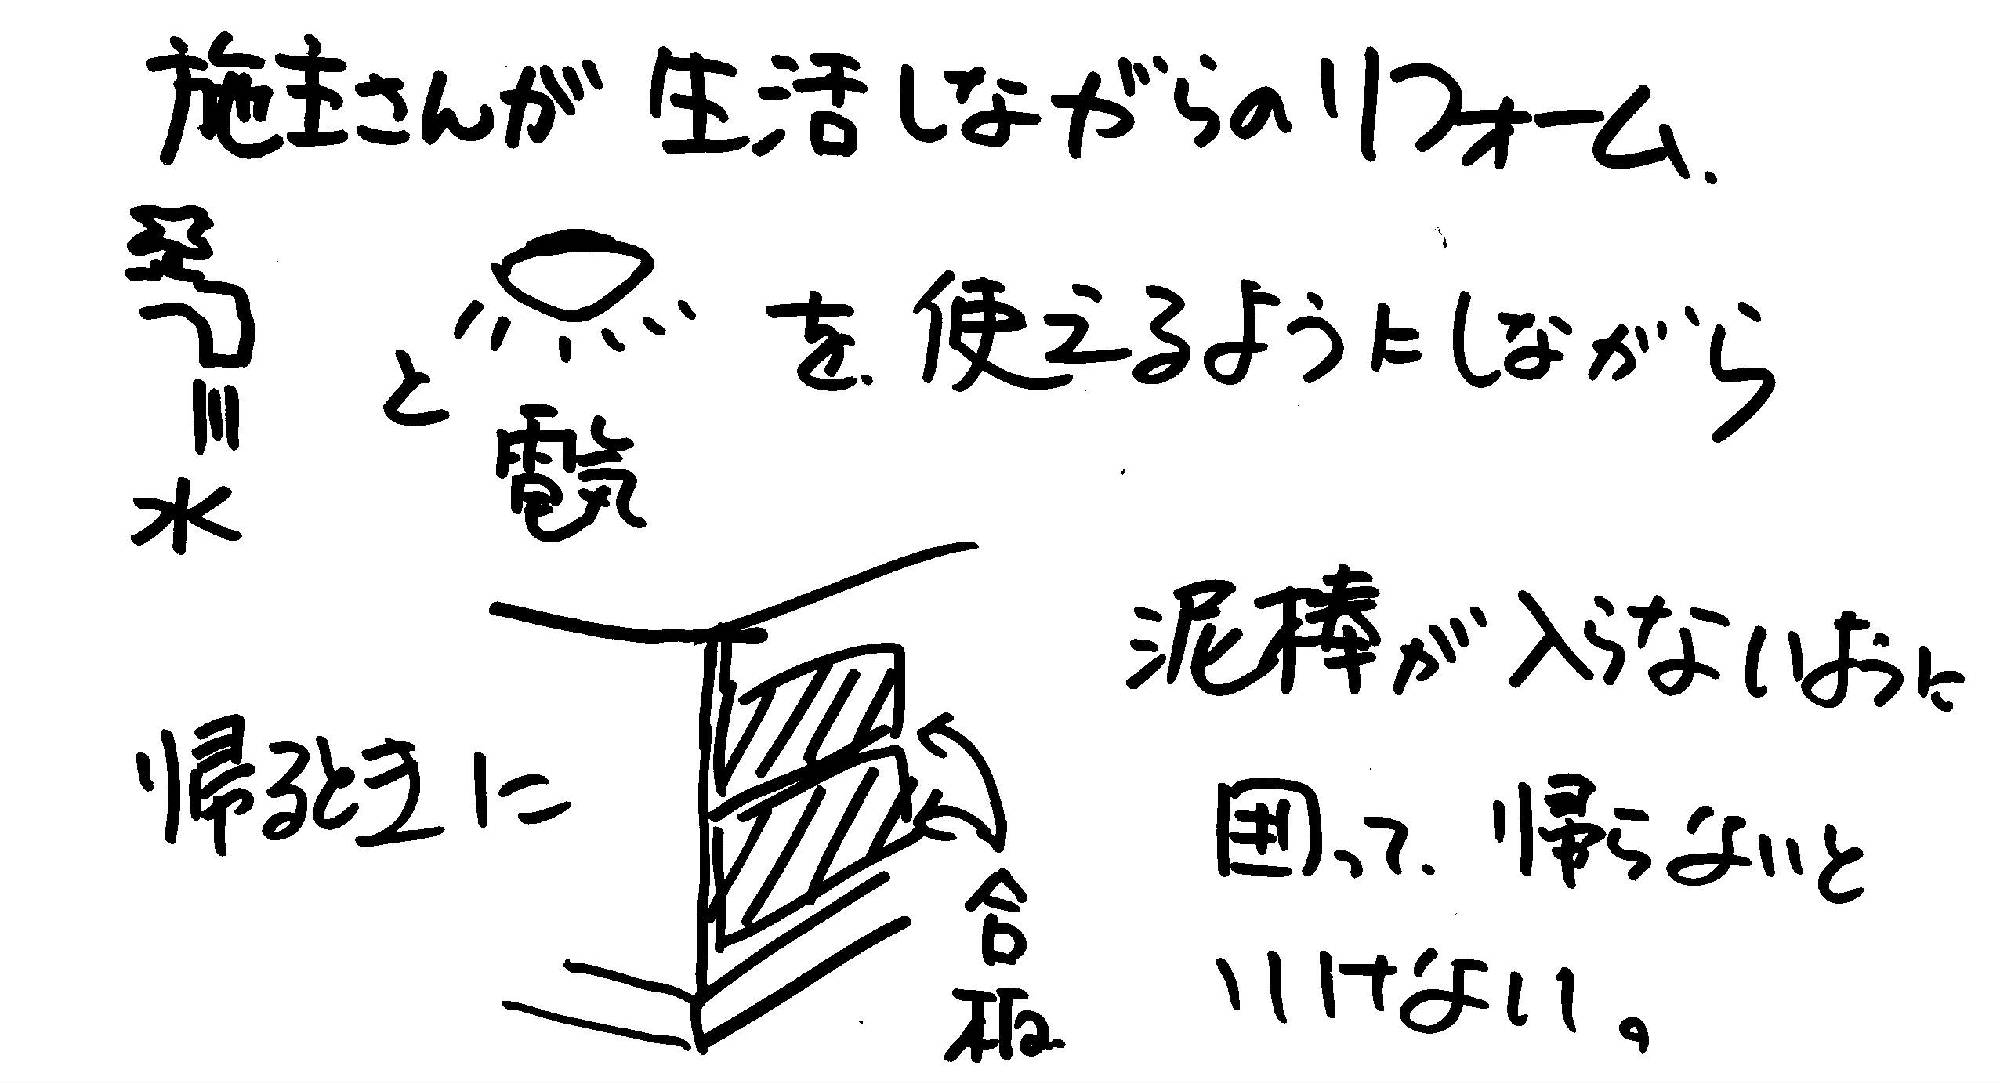 施主さんが生活しながらのリフォーム.
水と電気を使えるようにしながら
帰るときに
合板
泥棒が入らないように
囲って帰らないと
いけない。